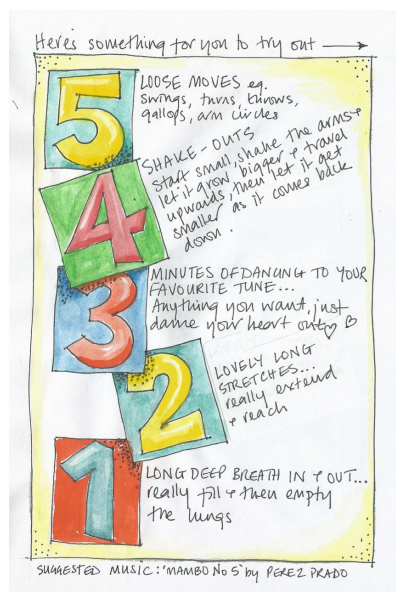 Here's something for you to try out →
5
LOOSE MOVES eg.
swings, turns, throws,
gallops, arm circles
4
SHAKE-OUTS
start small, shake the arms &
let it grow bigger & travel
upwards, then let it get
smaller as it comes back
down.
3
MINUTES OF DANCING TO YOUR
FAVOURITE TUNE...
Anything you want, just
dance your heart out ♡ ♡
2
LOVELY LONG
STRETCHES...
really extend
& reach
1
LONG DEEP BREATH IN & OUT...
really fill & then empty
the lungs
SUGGESTED MUSIC: 'MAMBO No 5' by PEREZ PRADO